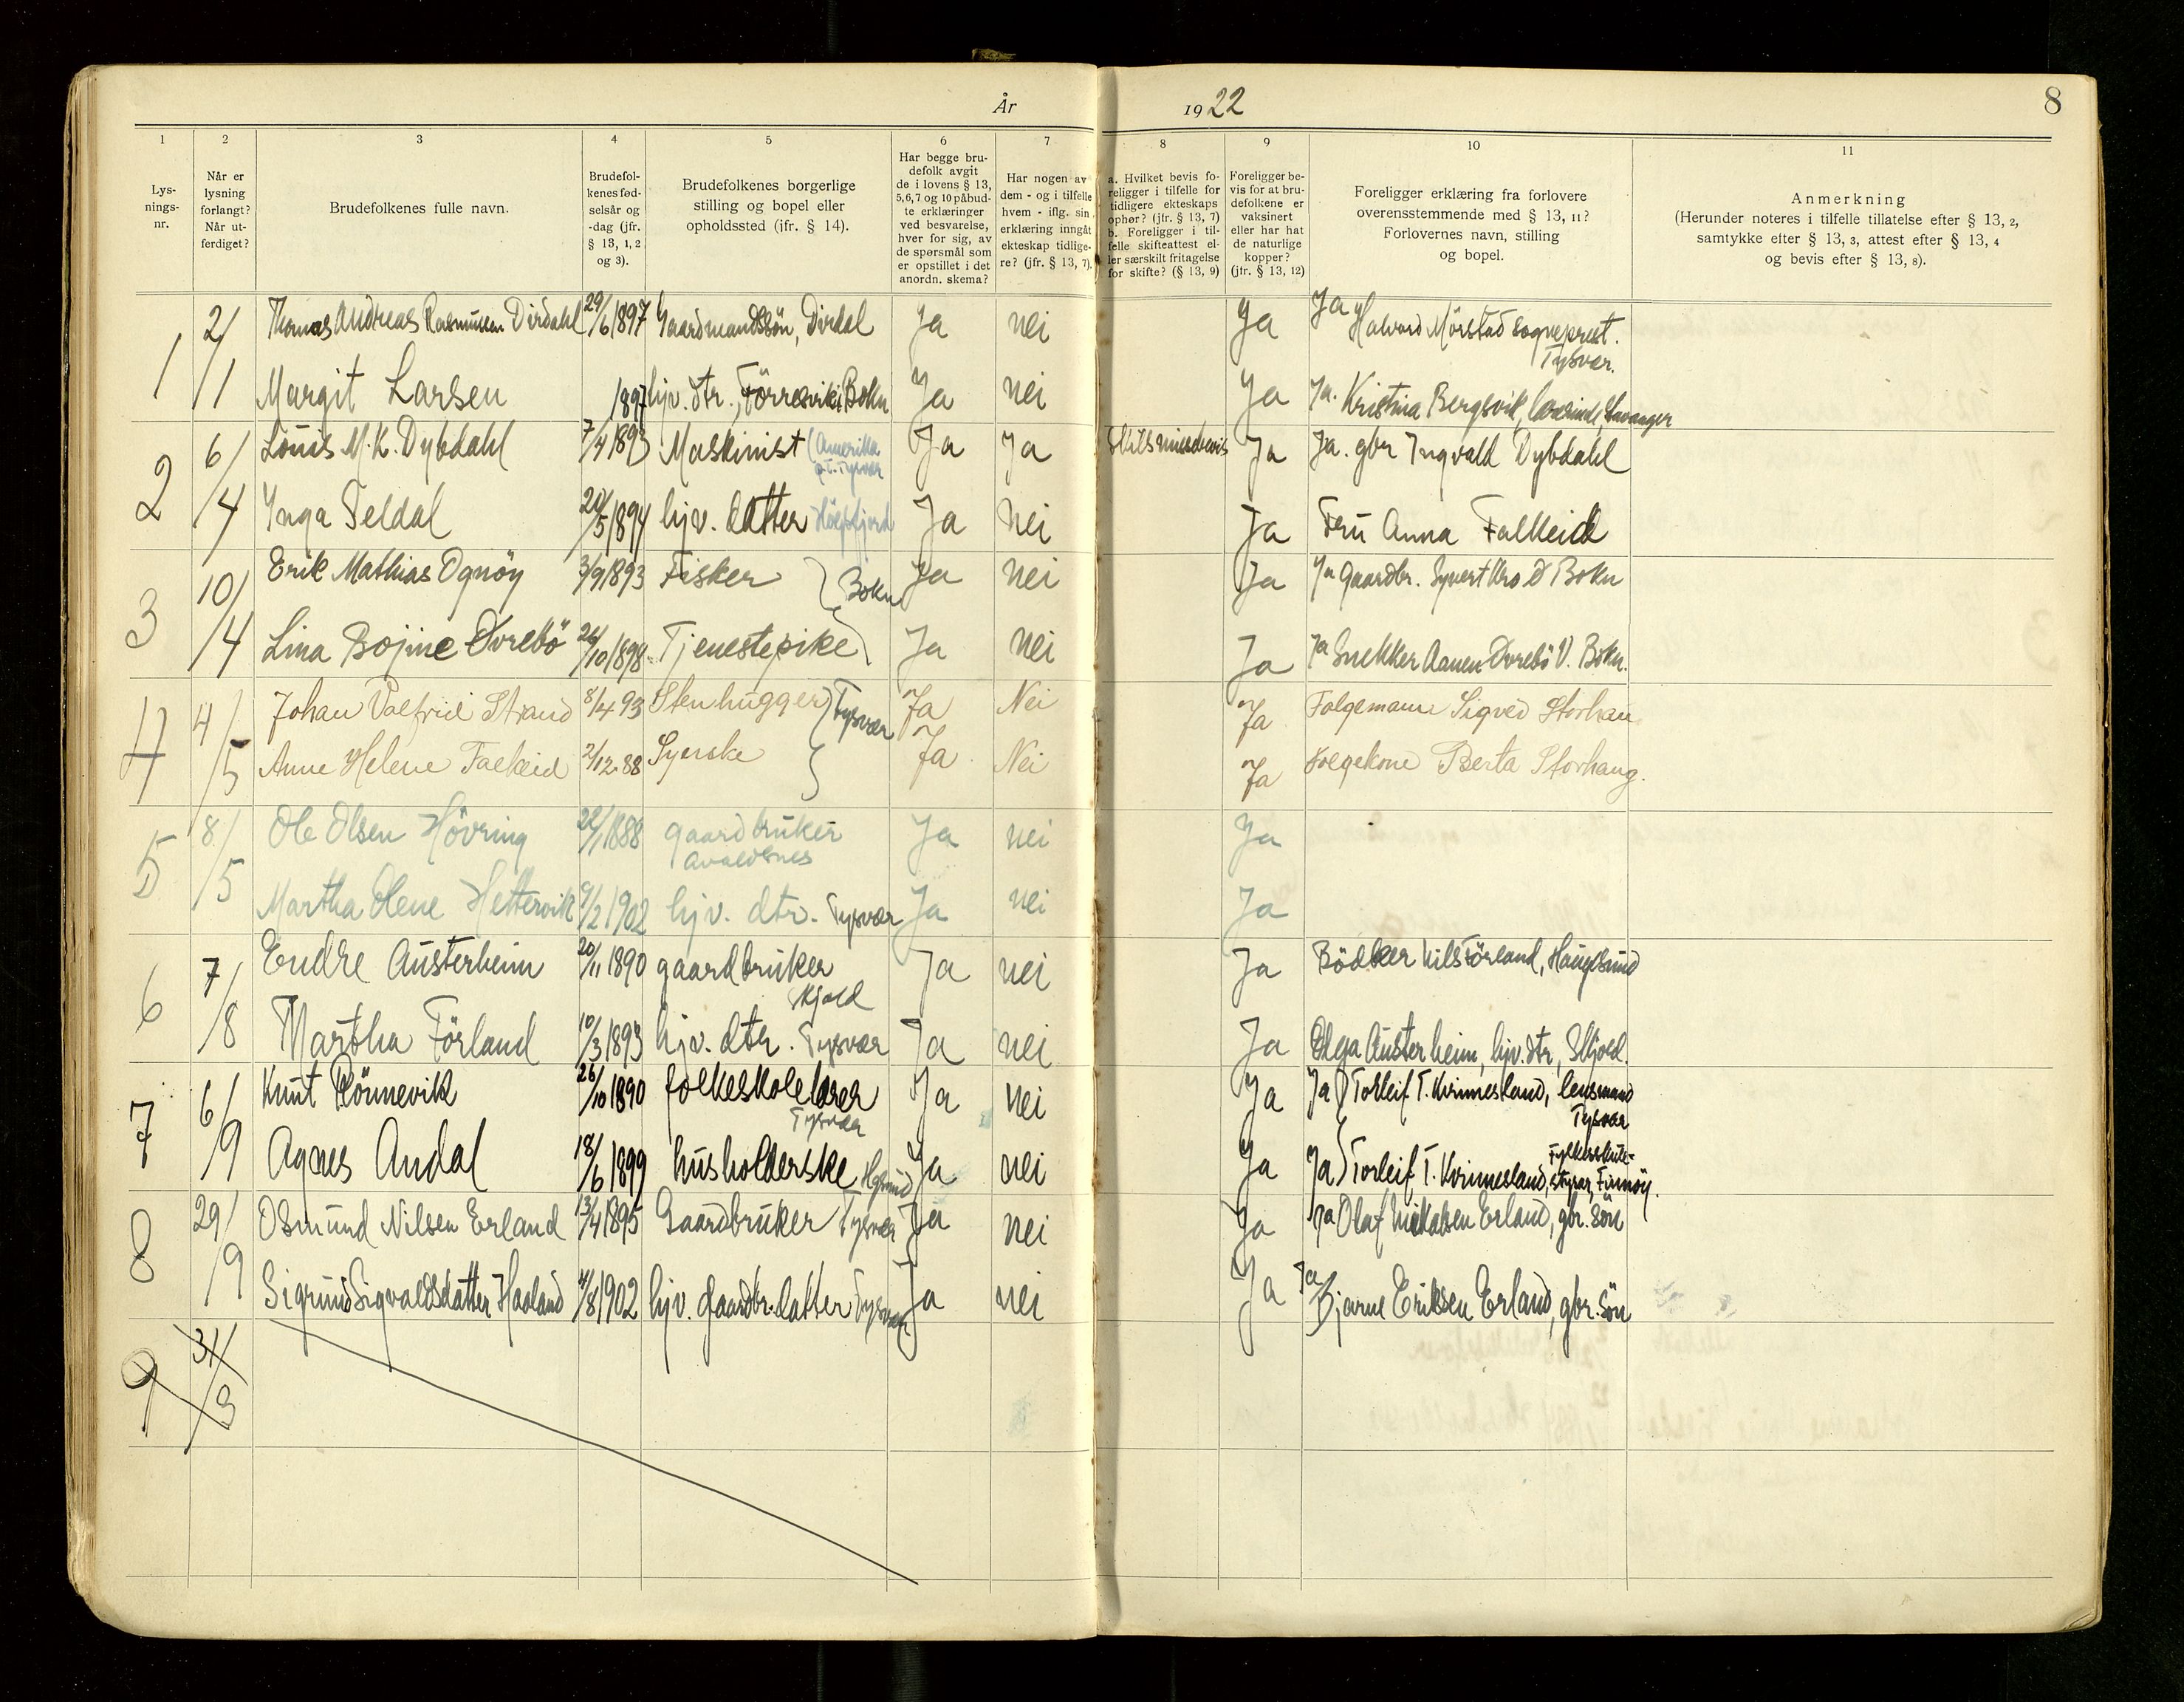 År 1922 8
1 2 3 4 5 6 7 8 9 10 11
Lys-
nings-
nr.
Når er
lysning
forlangt?
Når ut-
ferdiget?
Brudefolkenes fulle navn.
Brudefol-
kenes fød-
selsår og
-dag (jfr.
§ 13, 1, 2
og 3).
Brudefolkenes borgerlige
stilling og bopel eller
opholdssted (jfr. § 14).
Har begge bru-
defolk avgit
de i lovens § 13,
5, 6, 7 og 10 påbud-
te erklæringer
ved besvarelse,
hver for sig, av
de spørsmål som
er opstillet i det
anordn. skema?
Har nogen av
dem - og i tilfelle
hvem - iflg. sin
erklæring inngåt
ekteskap tidlige-
re? (jfr. § 13, 7).
a. Hvilket bevis fo-
religger i tilfelle for
tidligere ekteskaps
ophør? (jfr. § 13, 7)
b. Foreligger i til-
felle skifteattest el-
ler særskilt fritagelse
for skifte? (§ 13, 9)
Foreligger be-
vis for at bru-
defolkene er
vaksinert
eller har hat
de naturlige
kopper?
(jfr. § 13, 12)
Foreligger erklæring fra forlovere
overensstemmende med § 13, 11?
Forlovernes navn, stilling
og bopel.
Anmerkning
(Herunder noteres i tilfelle tillatelse efter § 13, 2,
samtykke efter § 13, 3, attest efter § 13, 4
og bevis efter § 13, 8).
1 2/1 Thomas Andreas Rasmussen Dirdahl 29/6 1897 Gaardmandssön, Dirdal Ja nei Ja Ja Halvard Mörstad sogneprest.
Tysvær.
Margit Larsen 1897 hjv. dtr., Förresvik i Bokn Ja nei Ja Ja. Kristina Bergsvik, Stavanger
2 6/4 Louis M. K. Dybdahl 7/4 1893 Maskinist (Amerika
p.t. Tysvær
Ja Ja Skilsmissebevis Ja Ja. gbr Ingvald Dybdahl
Inga Feldal 20/5 1894 hjv. datter Ja nei Ja Fru Anna Falkeid
3 10/4 Erik Mathias Ognöy 3/9 1893 Fisker Bokn Ja nei Ja Ja Gaardbr. Syvert Bokn
Lina Bojine Övrebö 24/10 1898 Tjenestepike Ja nei Ja Ja Snekker Aanen Övrebö V. Bokn.
4 4/5 Johan Valfrid Strand 8/4 93 Stenhugger Tysvær Ja Nei Ja Folgemann Sigved Storhaug
Anne Helene Falkeid 2/12 88 Syerske Ja Nei Ja Folgekone Berta Storhaug.
5 8/5 Ole Olsen Hövring 22/1 1888 gaardbruker
Avaldsnes
Ja nei Ja
Martha Olene Hettervik 9/2 1902 hjv. dtr. Tysvær Ja nei Ja
6 7/8 Endre Austerheim 20/11 1890 gaardbruker
Skjold
Ja nei Ja Bödker Nils Förland, Haugesund
Martha Förland 10/3 1893 hjv. dtr. Tysvær Ja nei Ja Olga Austerheim, hjv. dtr, Skjold.
7 6/9 Knut Rönnevik 26/10 1890 folkeskolelærer
Tysvær
Ja nei Ja Ja Torleif T. Kvinnesland, lensmand
Tysvær
Agnes Andal 18/6 1899 husholderske Hgsund Ja nei Ja Ja Torleif T. Kvinnesland, Fylkesskule-
styrar, Finnöy.
8 29/9 Osmund Nilsen Erland 13/4 1895 Gaardbruker Tysvær Ja nei Ja Ja Olaf Mikalsen Erland, gbr. sön
Sigrund Sigvaldsdatter Haaland 4/8 1902 hjv. Gaardbr. datter Tysvær Ja nei Ja Ja Bjarne Eriksen Erland, gbr. sön
9 31/3